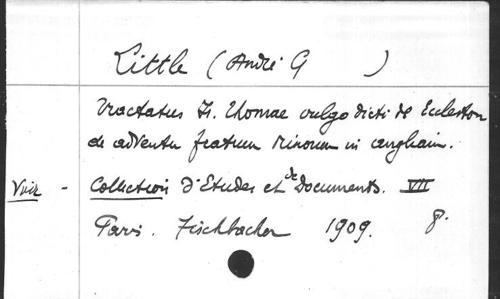 Little (André G )
Tractatus Fr. Thomae vulgo dicti de Eccleston
de adventu fratrum Minorum in angliam.
Voir - Collection d'Etudes et de Documents. VII
Paris. Fischbacher 1909. 8.